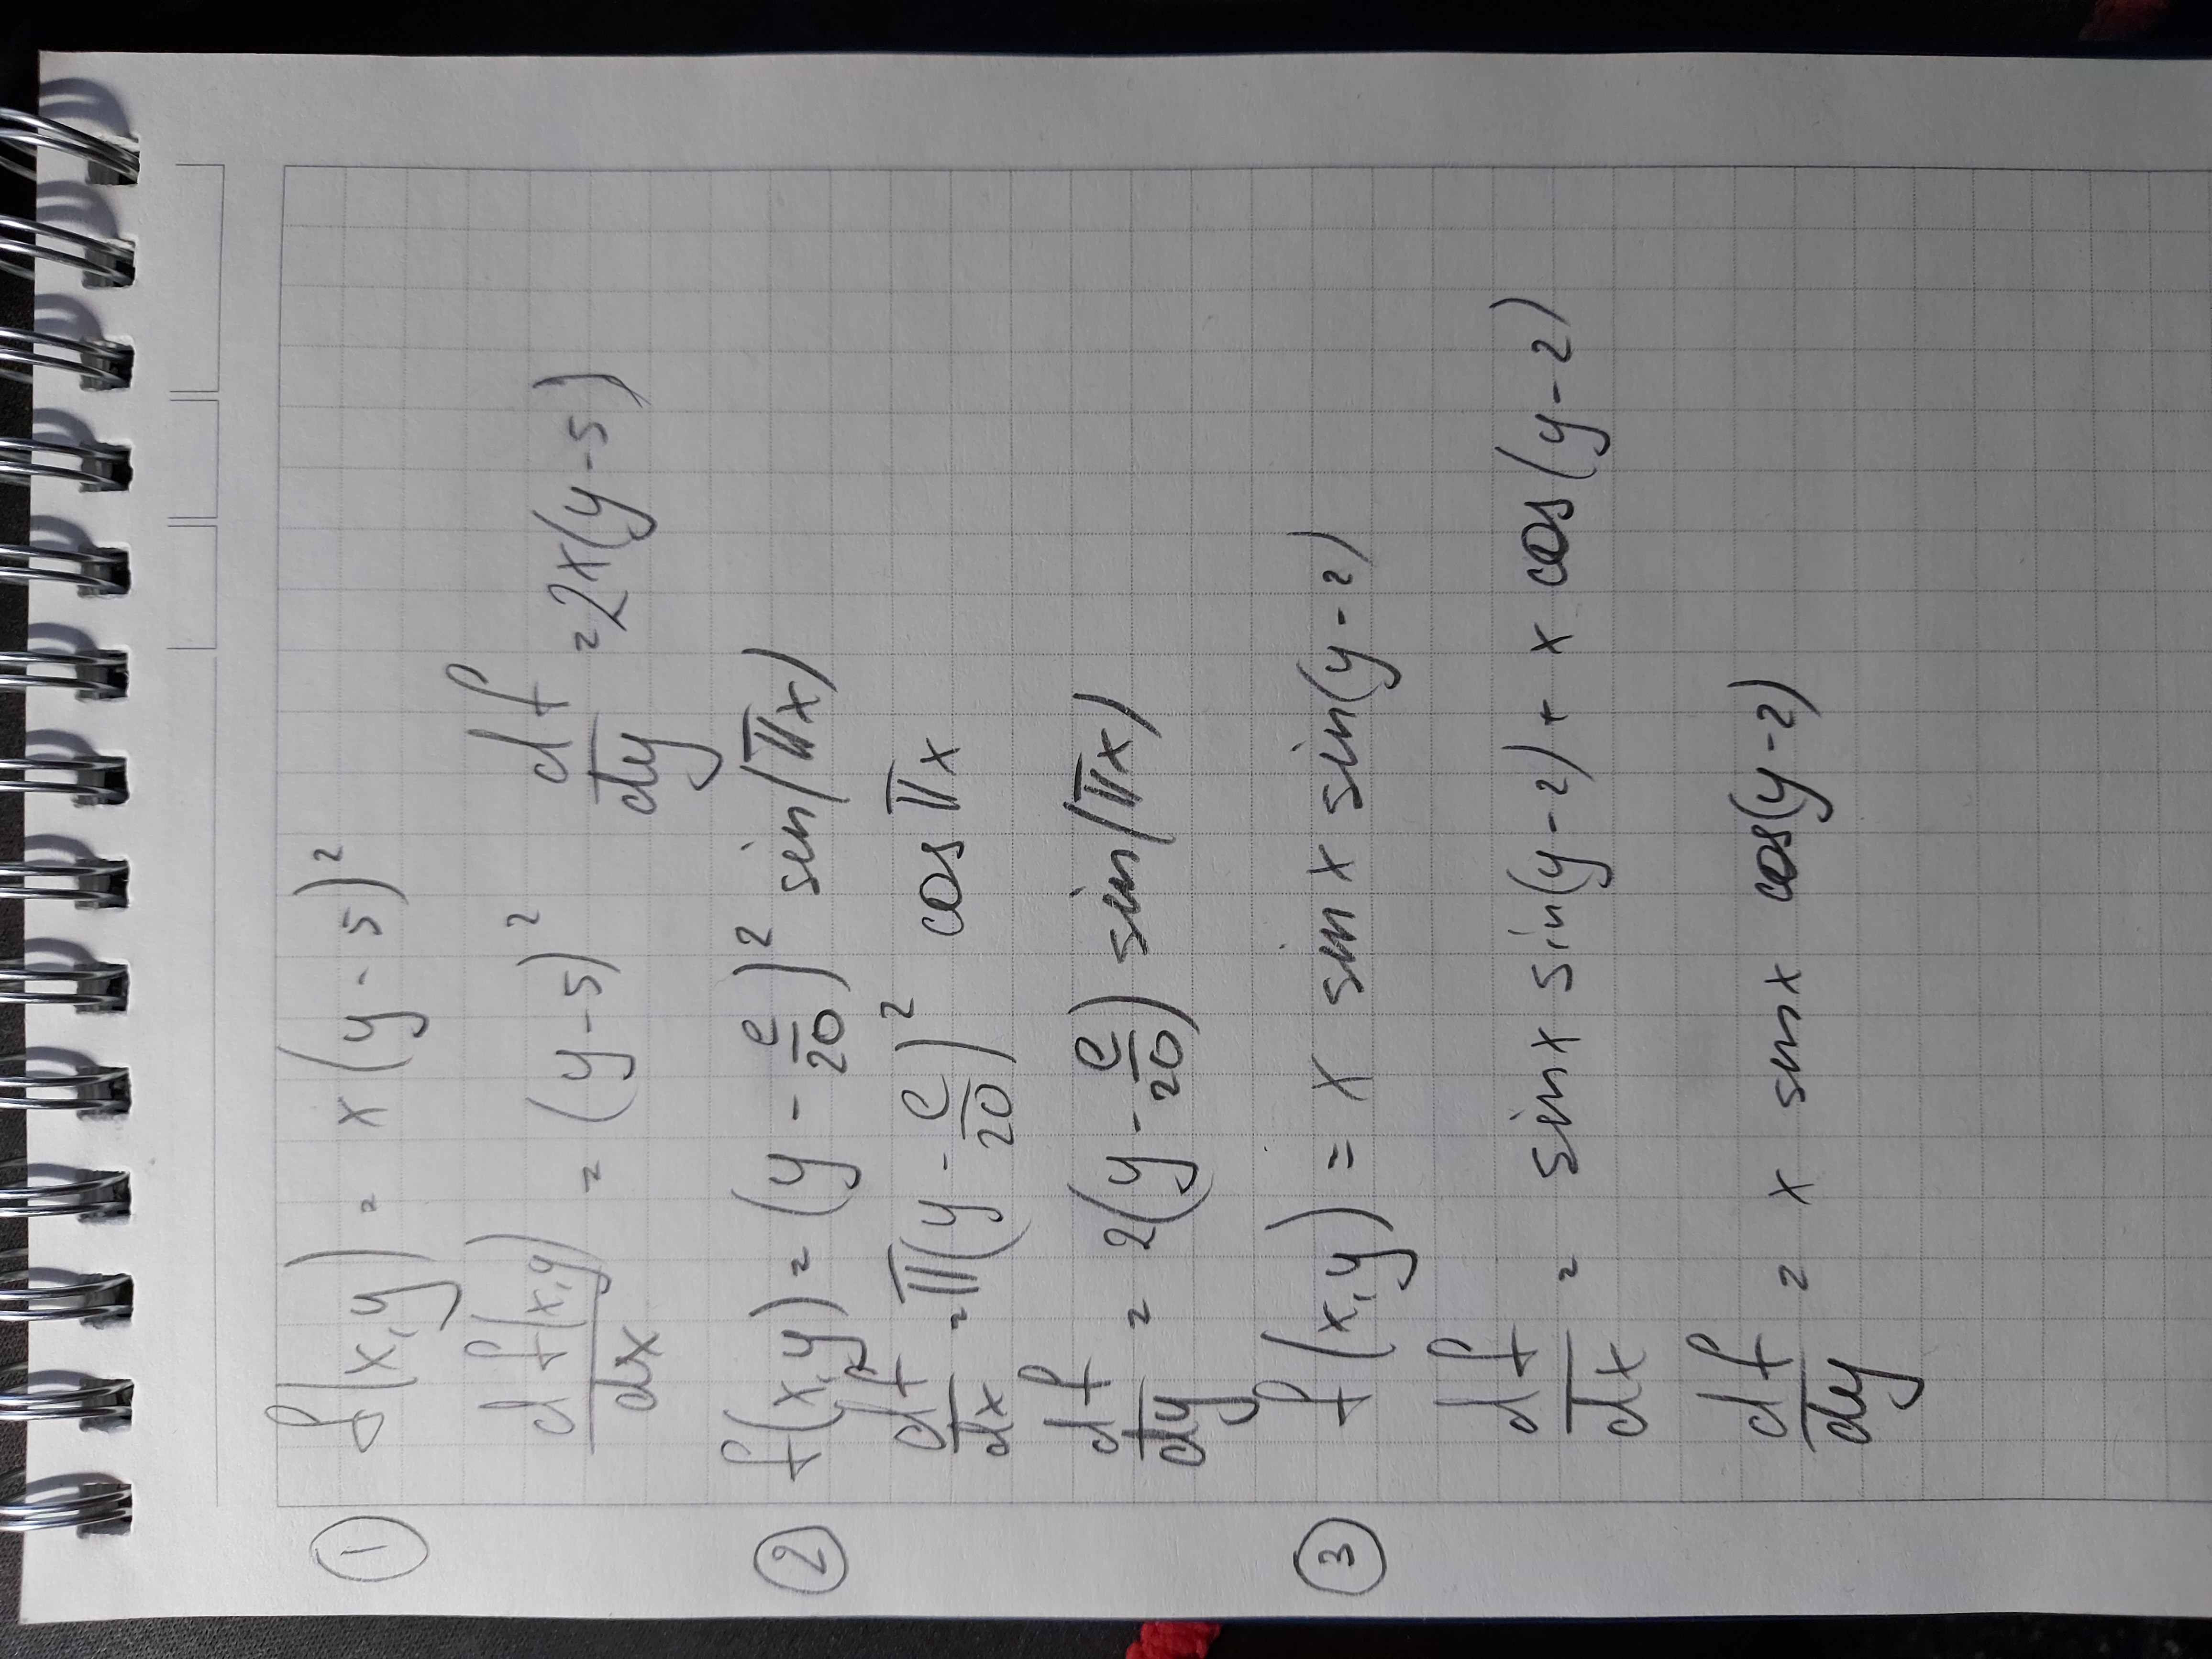 ① f(x,y) = x(y - 5)²
df(x,y)/dx = (y - 5)² df/dy = 2x(y - 5)
② f(x,y) = (y - e/20)² sin(πx)
df/dx = π(y - e/20)² cos πx
df/dy = 2(y - e/20) sin(πx)
③ f(x,y) = x sin x sin(y - 2)
df/dx = sin x sin(y - 2) + x cos(y - 2)
df/dy = x sin x cos(y - 2)